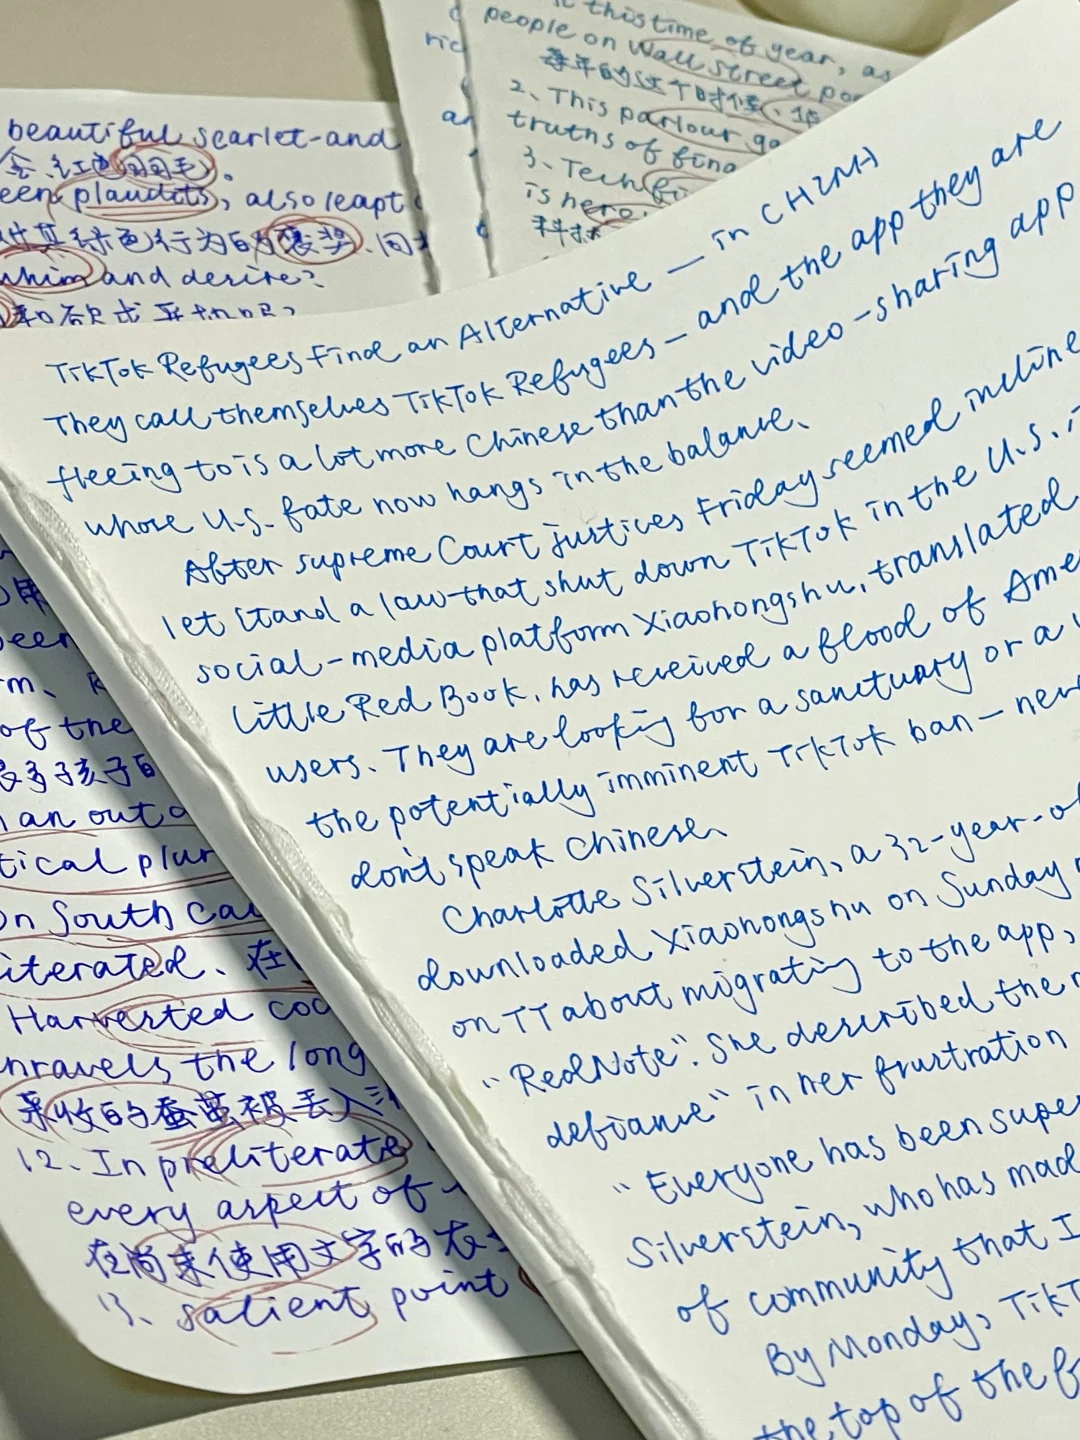 TikTok Refugees Find an Alternative — in CHINA
They call themselves TikTok Refugees — and the app they are
fleeing to is a lot more Chinese than the video-sharing app
whose U.S. fate now hangs in the balance.
After supreme Court justices Friday seemed incline
let stand a law that shut down TikTok in the U.S.
social-media platform Xiaohongshu, translated
Little Red Book, has received a flood of Ame
users. They are looking for a sanctuary or a
the potentially imminent TikTok ban — nev
don't speak Chinese.
Charlotte Silverstein, a 32-year-ol
downloaded Xiaohongshu on Sunday
on TT about migrating to the app,
"RedNote". She described the
defiance" in her frustration
"Everyone has been supe
Silverstein, who has made
of community that I
By Monday, TikT
the top of the f
beautiful scarlet-and
een plaudits, also leapt
对其绿色行为的褒奖、同
whim and desire?
it this time of year, as
people on Wall street po
每年的这个时候、华
2、This parlour ga
truths of fina
3、Tech fi
is hero
科技
been
of the
很多孩子的
an out
tical plur
on South Ca
iterated、在
Harvested coc
nravels the long
采收的蚕茧被丢入
12、In preliterate
every aspect of
在尚未使用文字的农
13、salient point